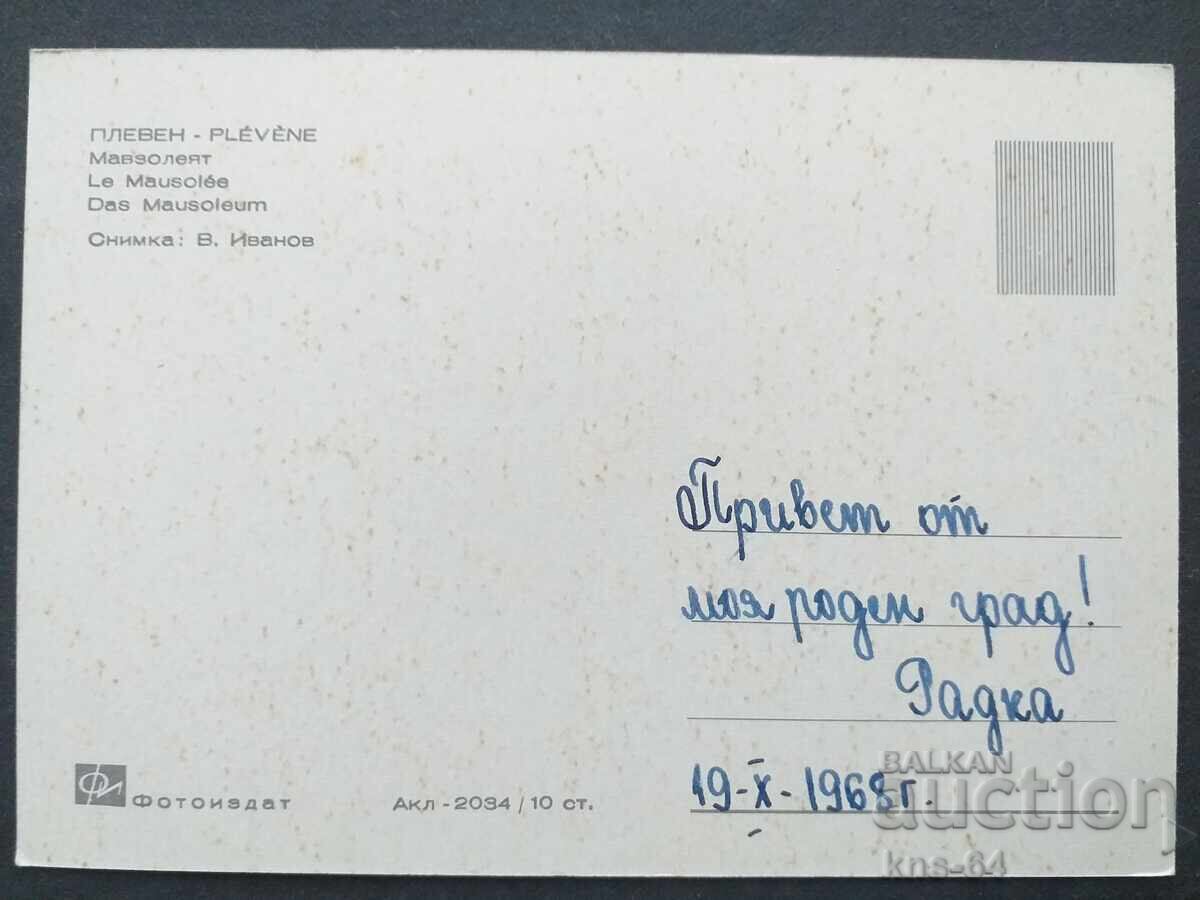 ПЛЕВЕН - PLÉVÈNE
Мавзолеят
Le Mausolée
Das Mausoleum
Снимка: В. Иванов
Привет от
моя роден град!
Радка
19-X-1968г.
ФИ Фотоиздат
Акл-2034/10 ст.
BALKAN
auction
kns-64